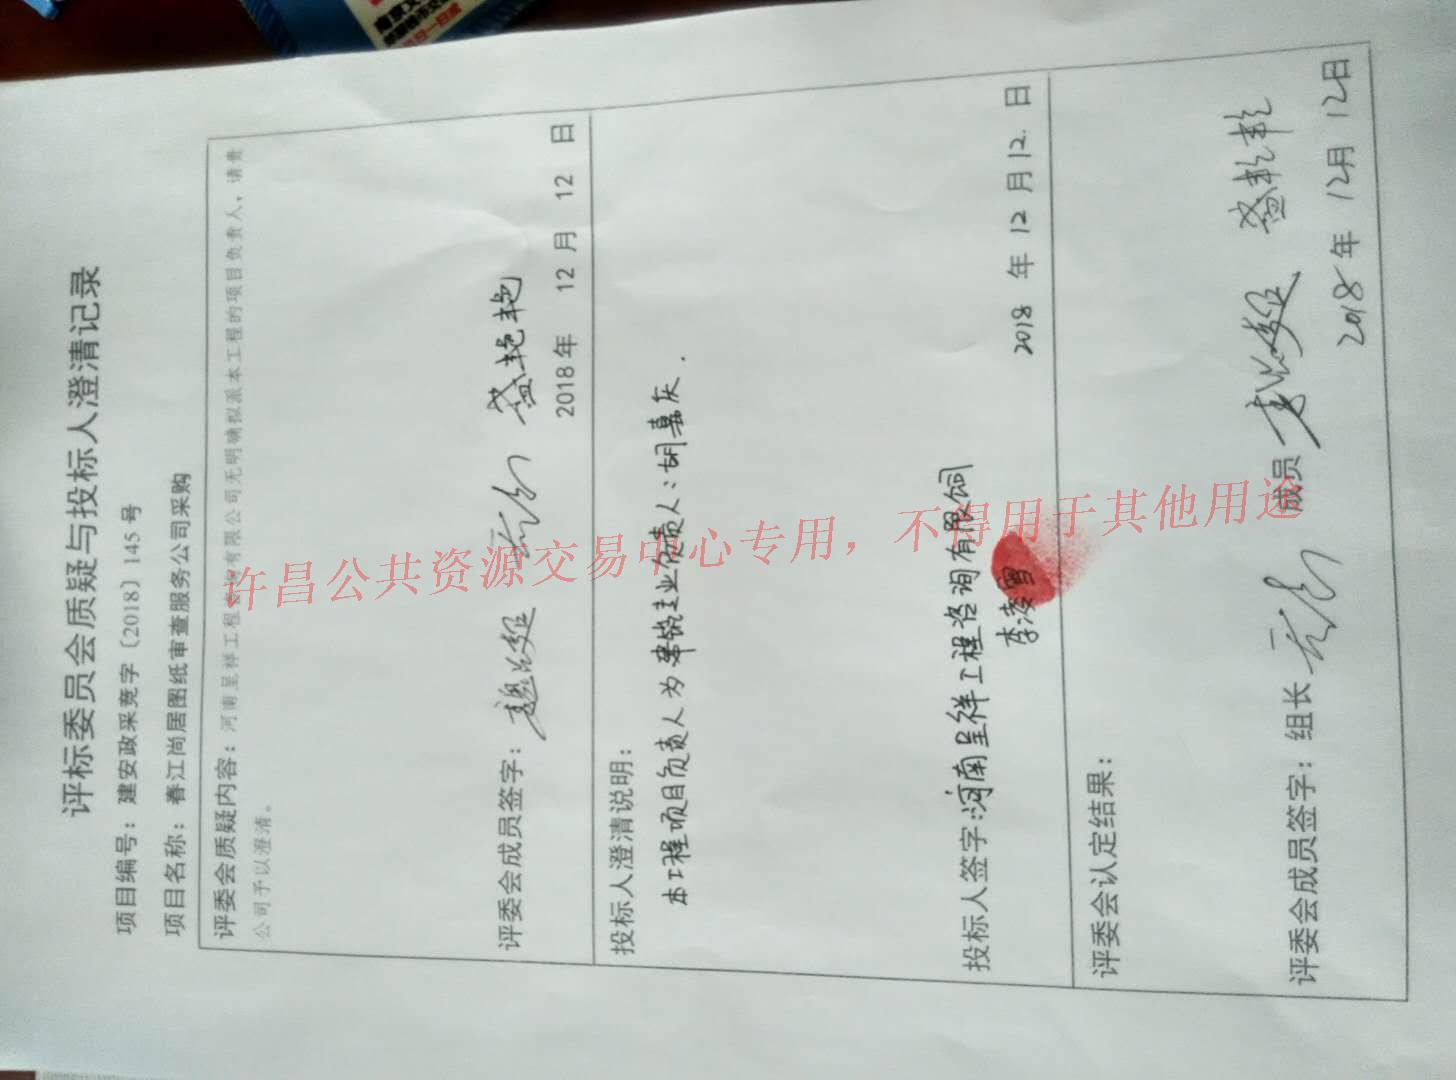 评标委员会质疑与投标人澄清记录
项目编号：建安政采竞字〔2018〕145号
项目名称：春江尚居图纸审查服务公司采购
评委会质疑内容：河南呈祥工程咨询有限公司无明确拟派本工程的项目负责人，请贵
公司予以澄清。
评委会成员签字：
2018年 12 月 12 日
投标人澄清说明：
本工程项目负责人为建筑专业负责人：胡嘉庆.
投标人签字：河南呈祥工程咨询有限公司
李凌雪
2018 年 12 月 12. 日
评委会认定结果：
评委会成员签字：组长 成员
2018年 12月 12日
许昌公共资源交易中心专用，不得用于其他用途